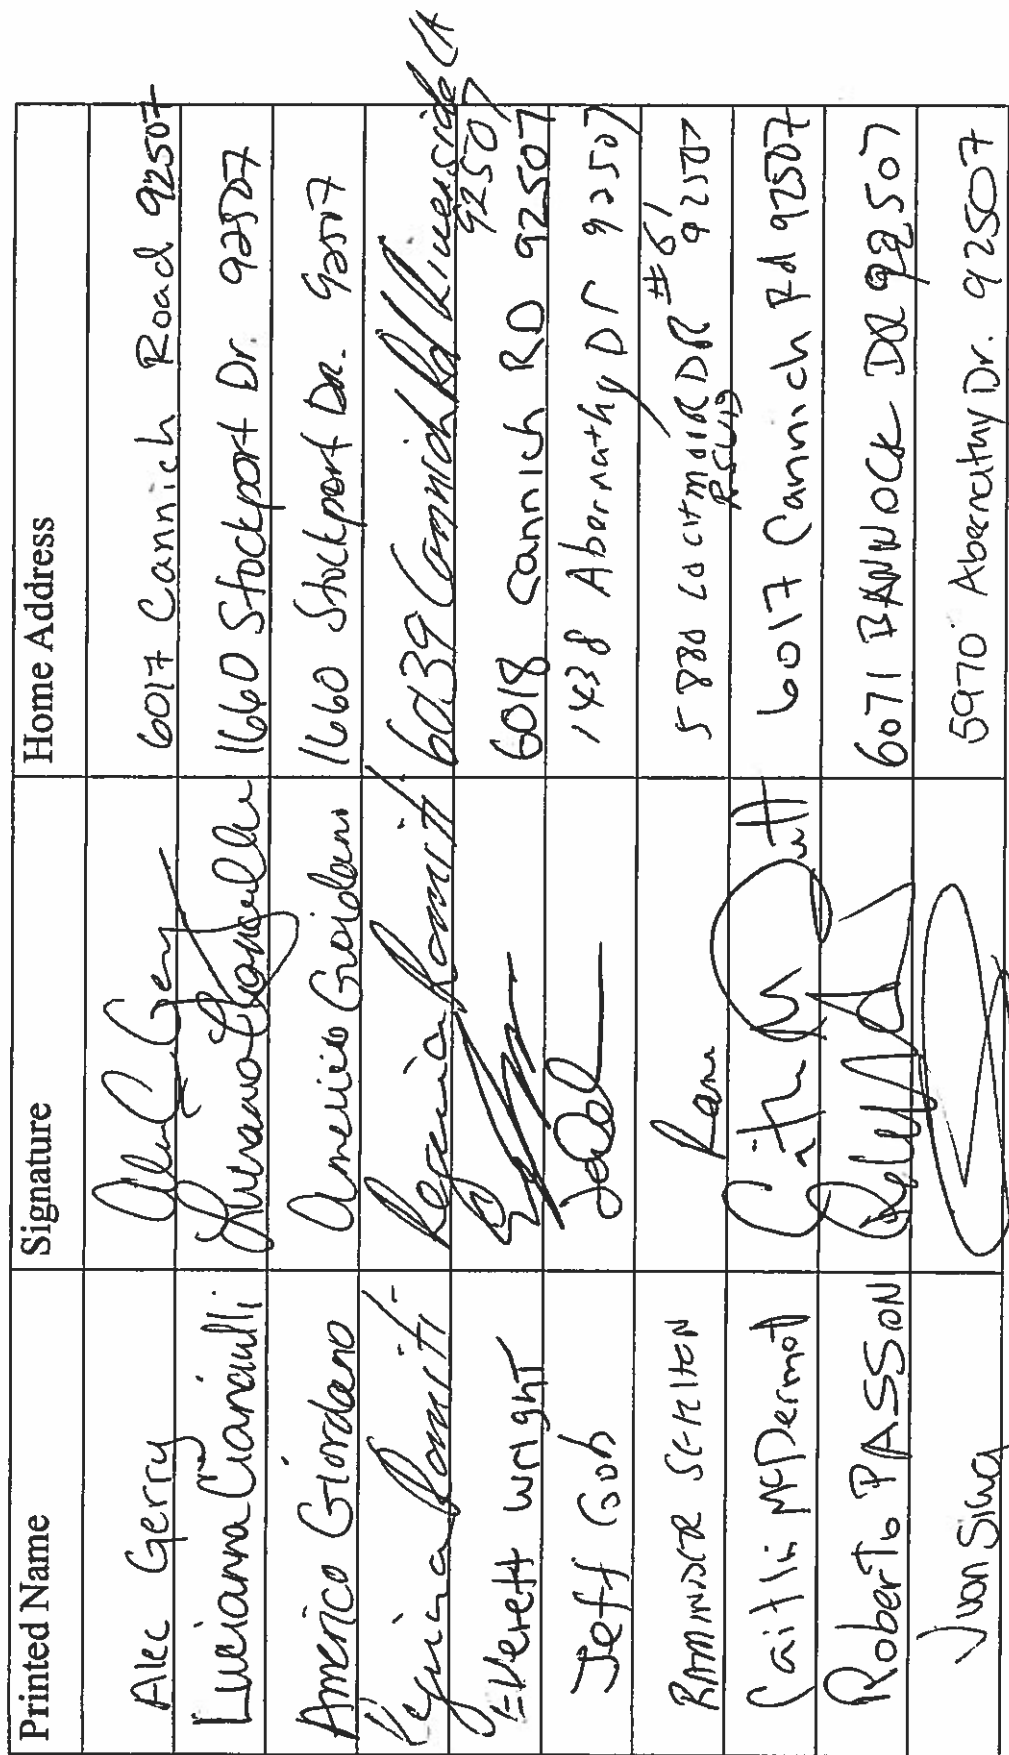 Printed Name Signature Home Address
Alec Gerry 6017 Cannich Road 92507
Lucianna Cianciulli 1660 Stockport Dr. 92507
Americo Giordano Americo Giordano 1660 Stockport Dr. 92507
Regina Romiti Regina Romiti 6039 Cannich Rd Riverside CA
92507
Everett Wright 6018 Cannich RD 92507
Jeff Goh 1438 Abernathy Dr 92507
Ram 5880 DR #6 92507
Caitlin McDermott 6017 Cannich Rd 92507
Roberto PASSON 6071 BANNOCK DR 92507
Juan 5970 Abernathy Dr. 92507